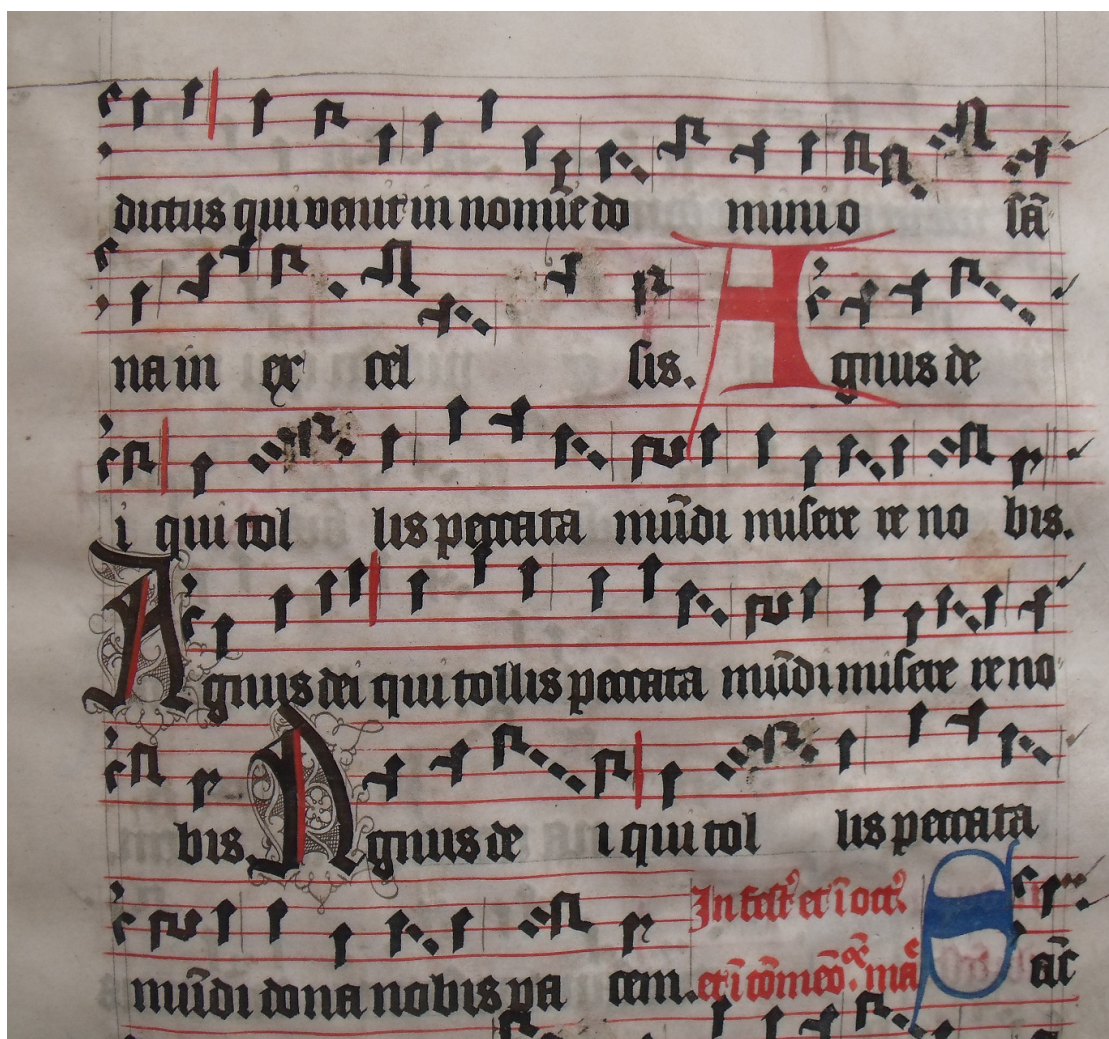 dictus qui venit in nomīe do minio sā
na in ex cel sis. Agnus de
i qui tol lis peccata mūdi misere re no bis.
Agnus dei qui tollis peccata mūdi misere re no
bis. Agnus de i qui tol lis peccata
mūdi dona nobis pa cem. In fest⁹ et ī oct⁹
et ī cōmeō
Sāc